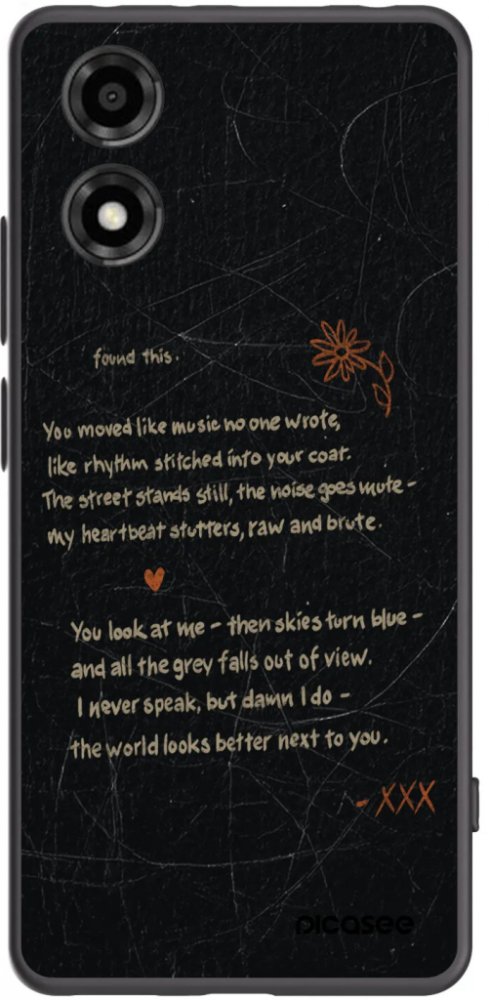 found this.
You moved like music no one wrote,
like rhythm stitched into your coat.
The street stands still, the noise goes mute -
my heartbeat stutters, raw and brute.
You look at me - then skies turn blue -
and all the grey falls out of view.
I never speak, but damn I do -
the world looks better next to you.
- XXX
picasee